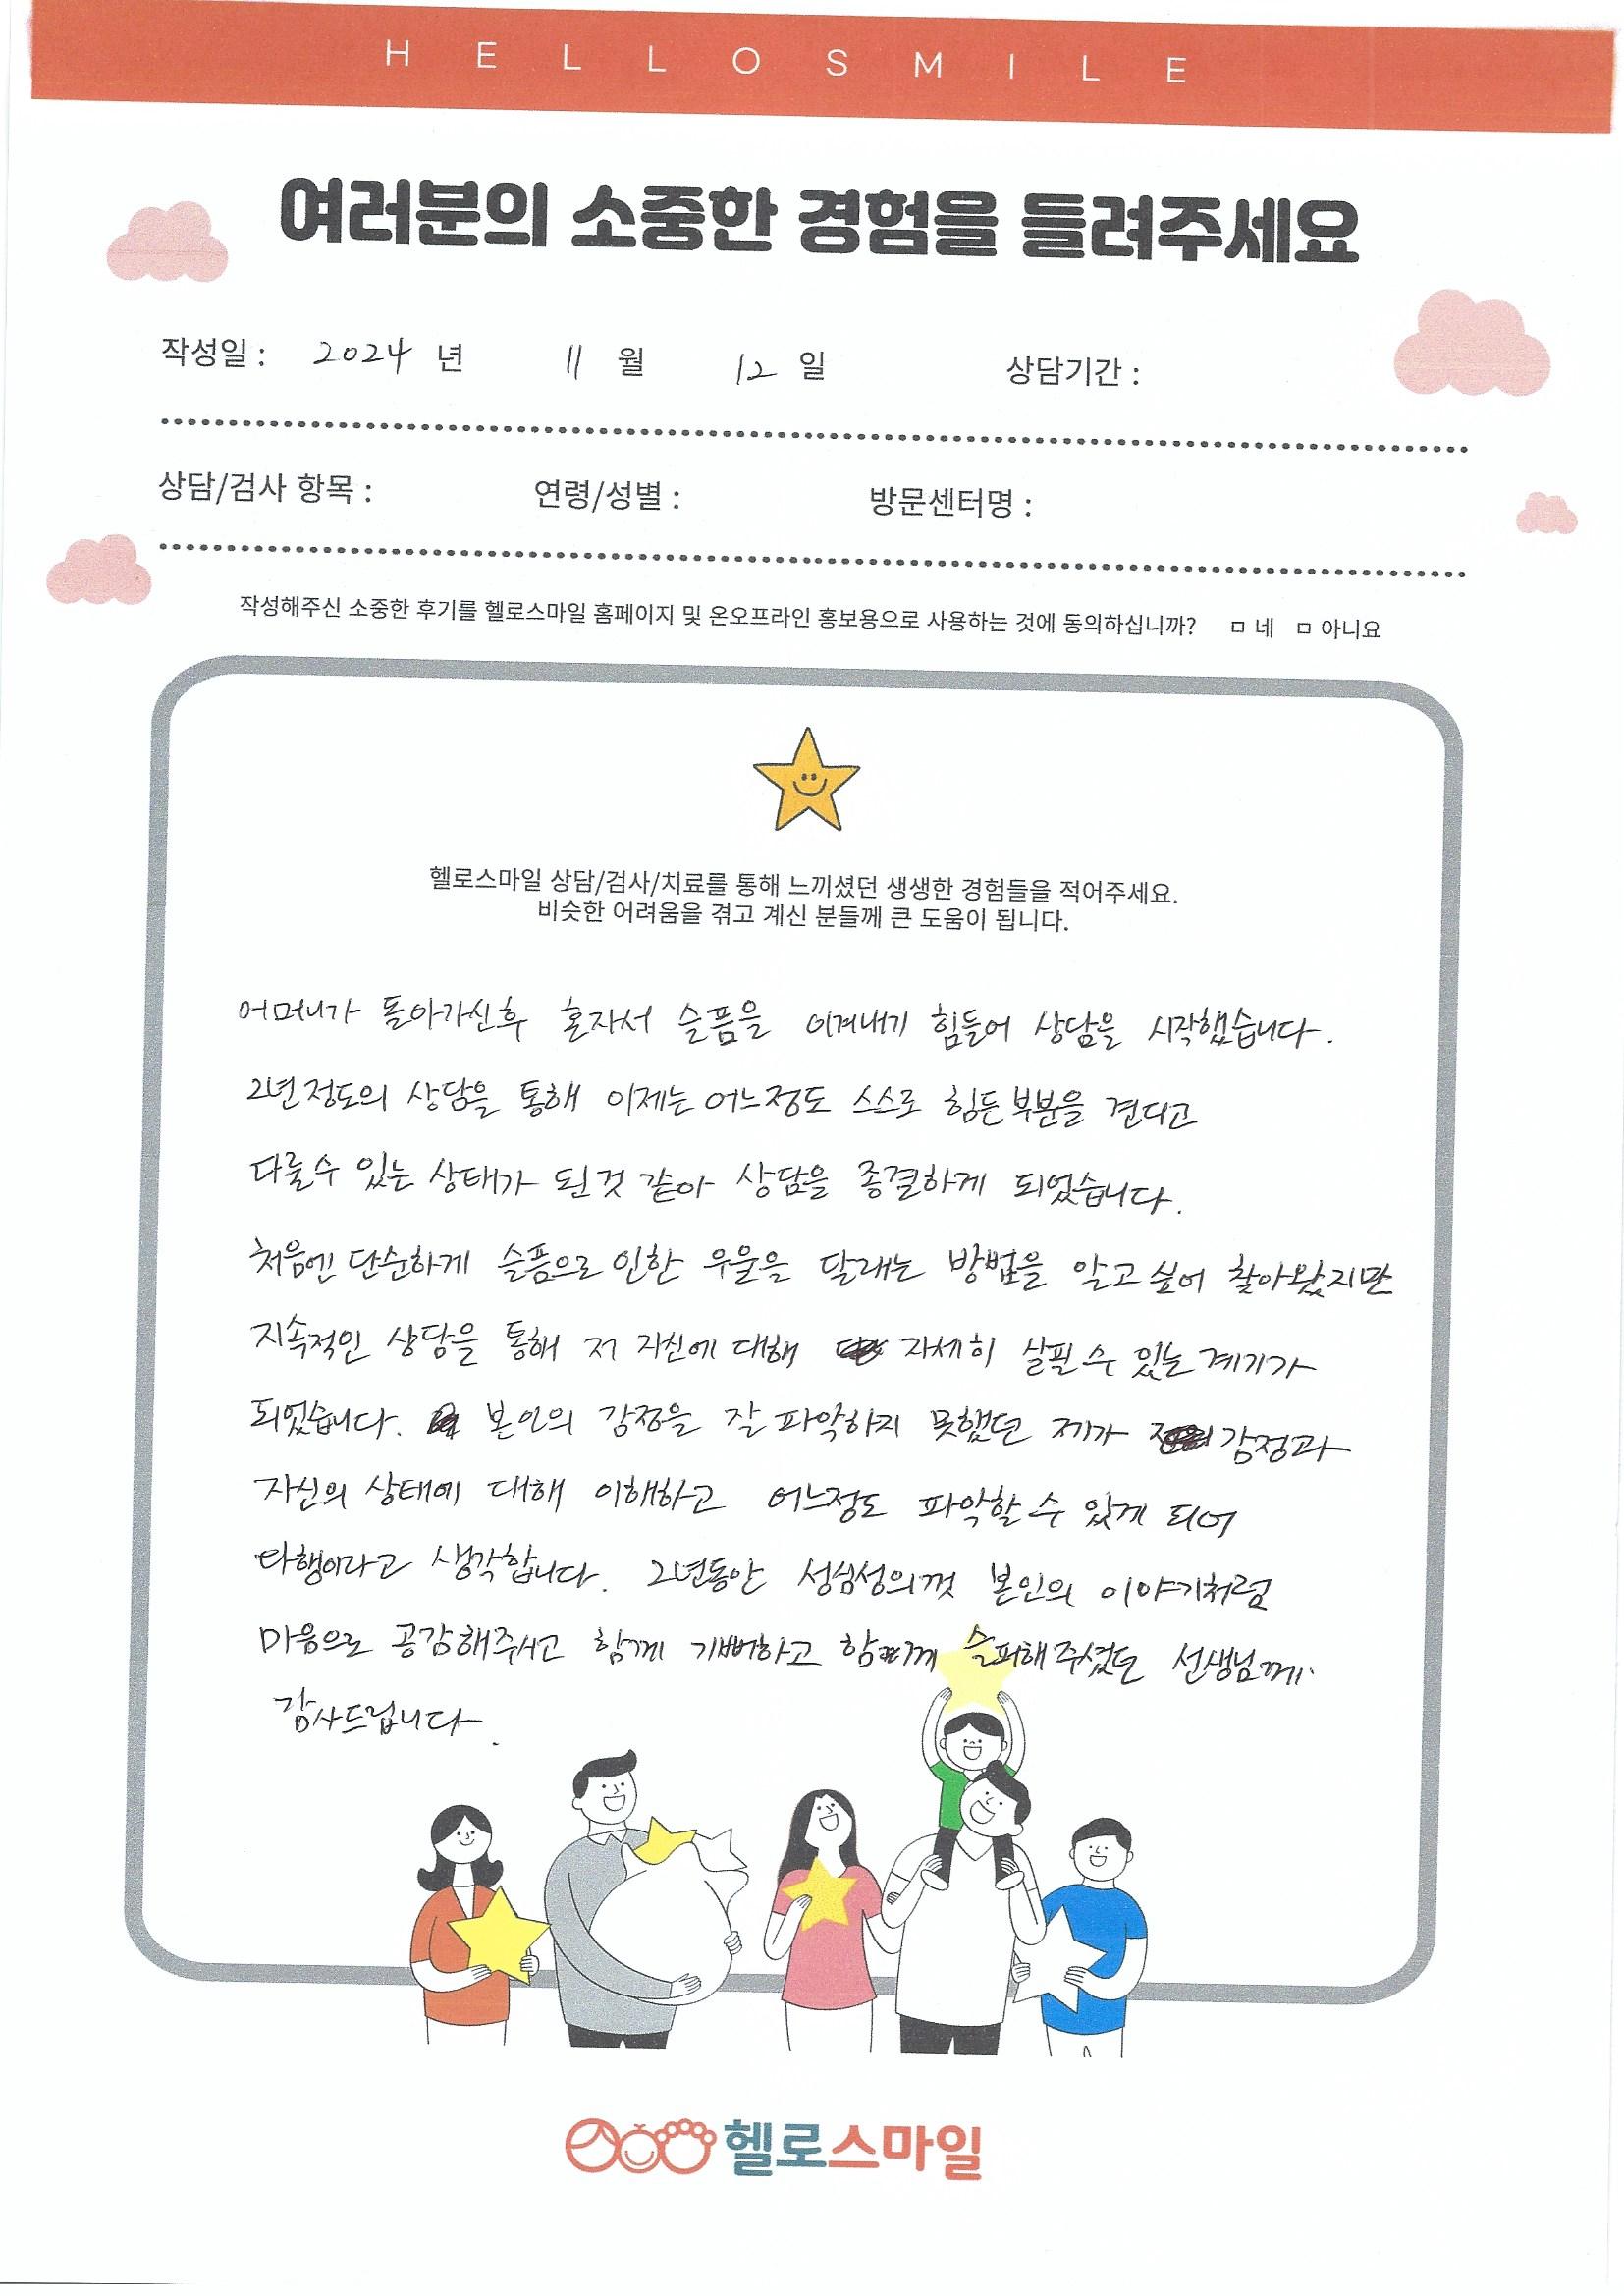 HELLOSMILE
여러분의 소중한 경험을 들려주세요
작성일 : 2024 년 11 월 12 일 상담기간 :
상담/검사 항목 : 연령/성별 : 방문센터명 :
작성해주신 소중한 후기를 헬로스마일 홈페이지 및 온오프라인 홍보용으로 사용하는 것에 동의하십니까? ㅁ 네 ㅁ 아니요
헬로스마일 상담/검사/치료를 통해 느끼셨던 생생한 경험들을 적어주세요.
비슷한 어려움을 겪고 계신 분들께 큰 도움이 됩니다.
어머니가 돌아가신후 혼자서 슬픔을 이겨내기 힘들어 상담을 시작했습니다.
2년정도의 상담을 통해 이제는 어느정도 스스로 힘든부분을 견디고
다룰수 있는 상태가 된것 같아 상담을 종결하게 되었습니다.
처음엔 단순하게 슬픔으로 인한 우울을 달래는 방법을 알고싶어 찾아왔지만
지속적인 상담을 통해 저 자신에 대해 자세히 살필수 있는 계기가
되었습니다. 본인의 감정을 잘 파악하지 못했던 제가 감정과
자신의 상태에 대해 이해하고 어느정도 파악할수 있게 되어
다행이라고 생각합니다. 2년동안 성심성의껏 본인의 이야기처럼
마음으로 공감해주시고 함께 기뻐하고 함께 슬퍼해주셨던 선생님께
감사드립니다.
헬로스마일